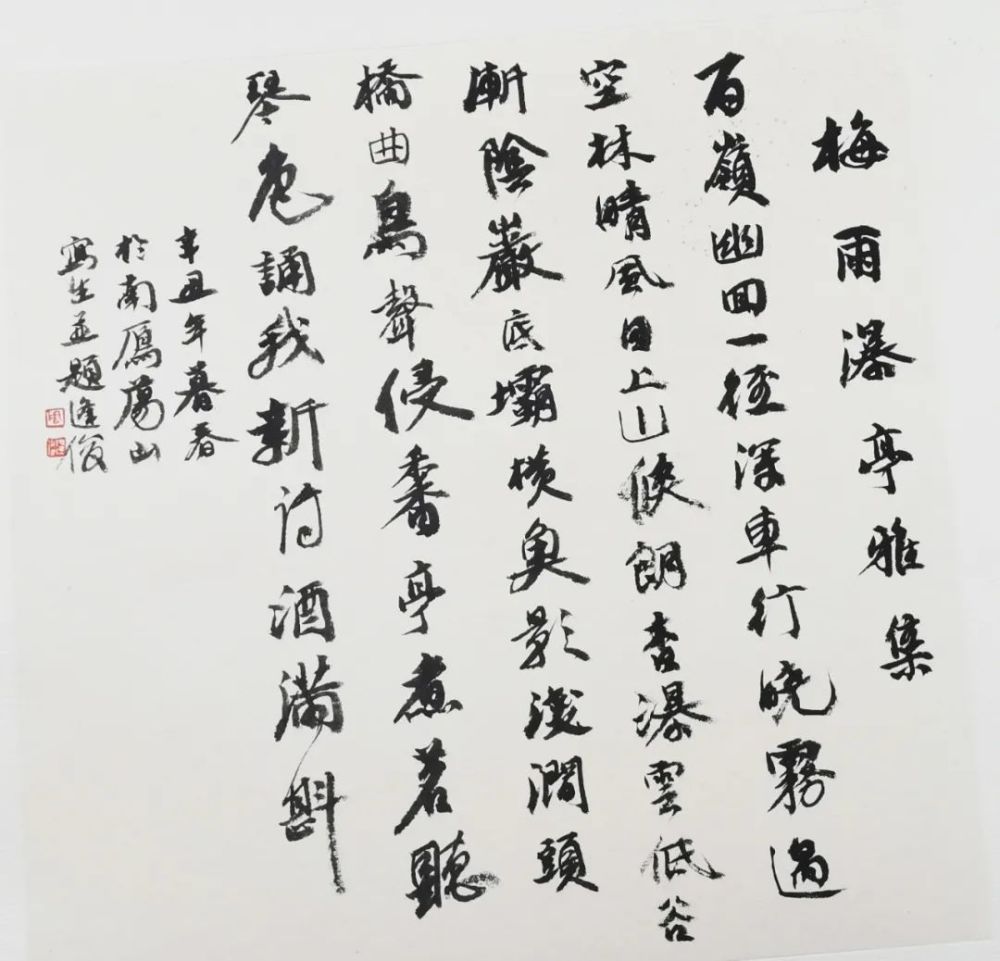 梅雨瀑亭雅集
百嶺幽回一徑深車行曉霧過
空林晴風日上山倏朗杳瀑雲低谷
漸陰巖底壩橫魚影淺澗頭
橋曲鳥聲侵亭煮茗聽
琴處誦我新詩酒滿斟
辛丑年暮春
於南鴈蕩山
寫生並題逢俊